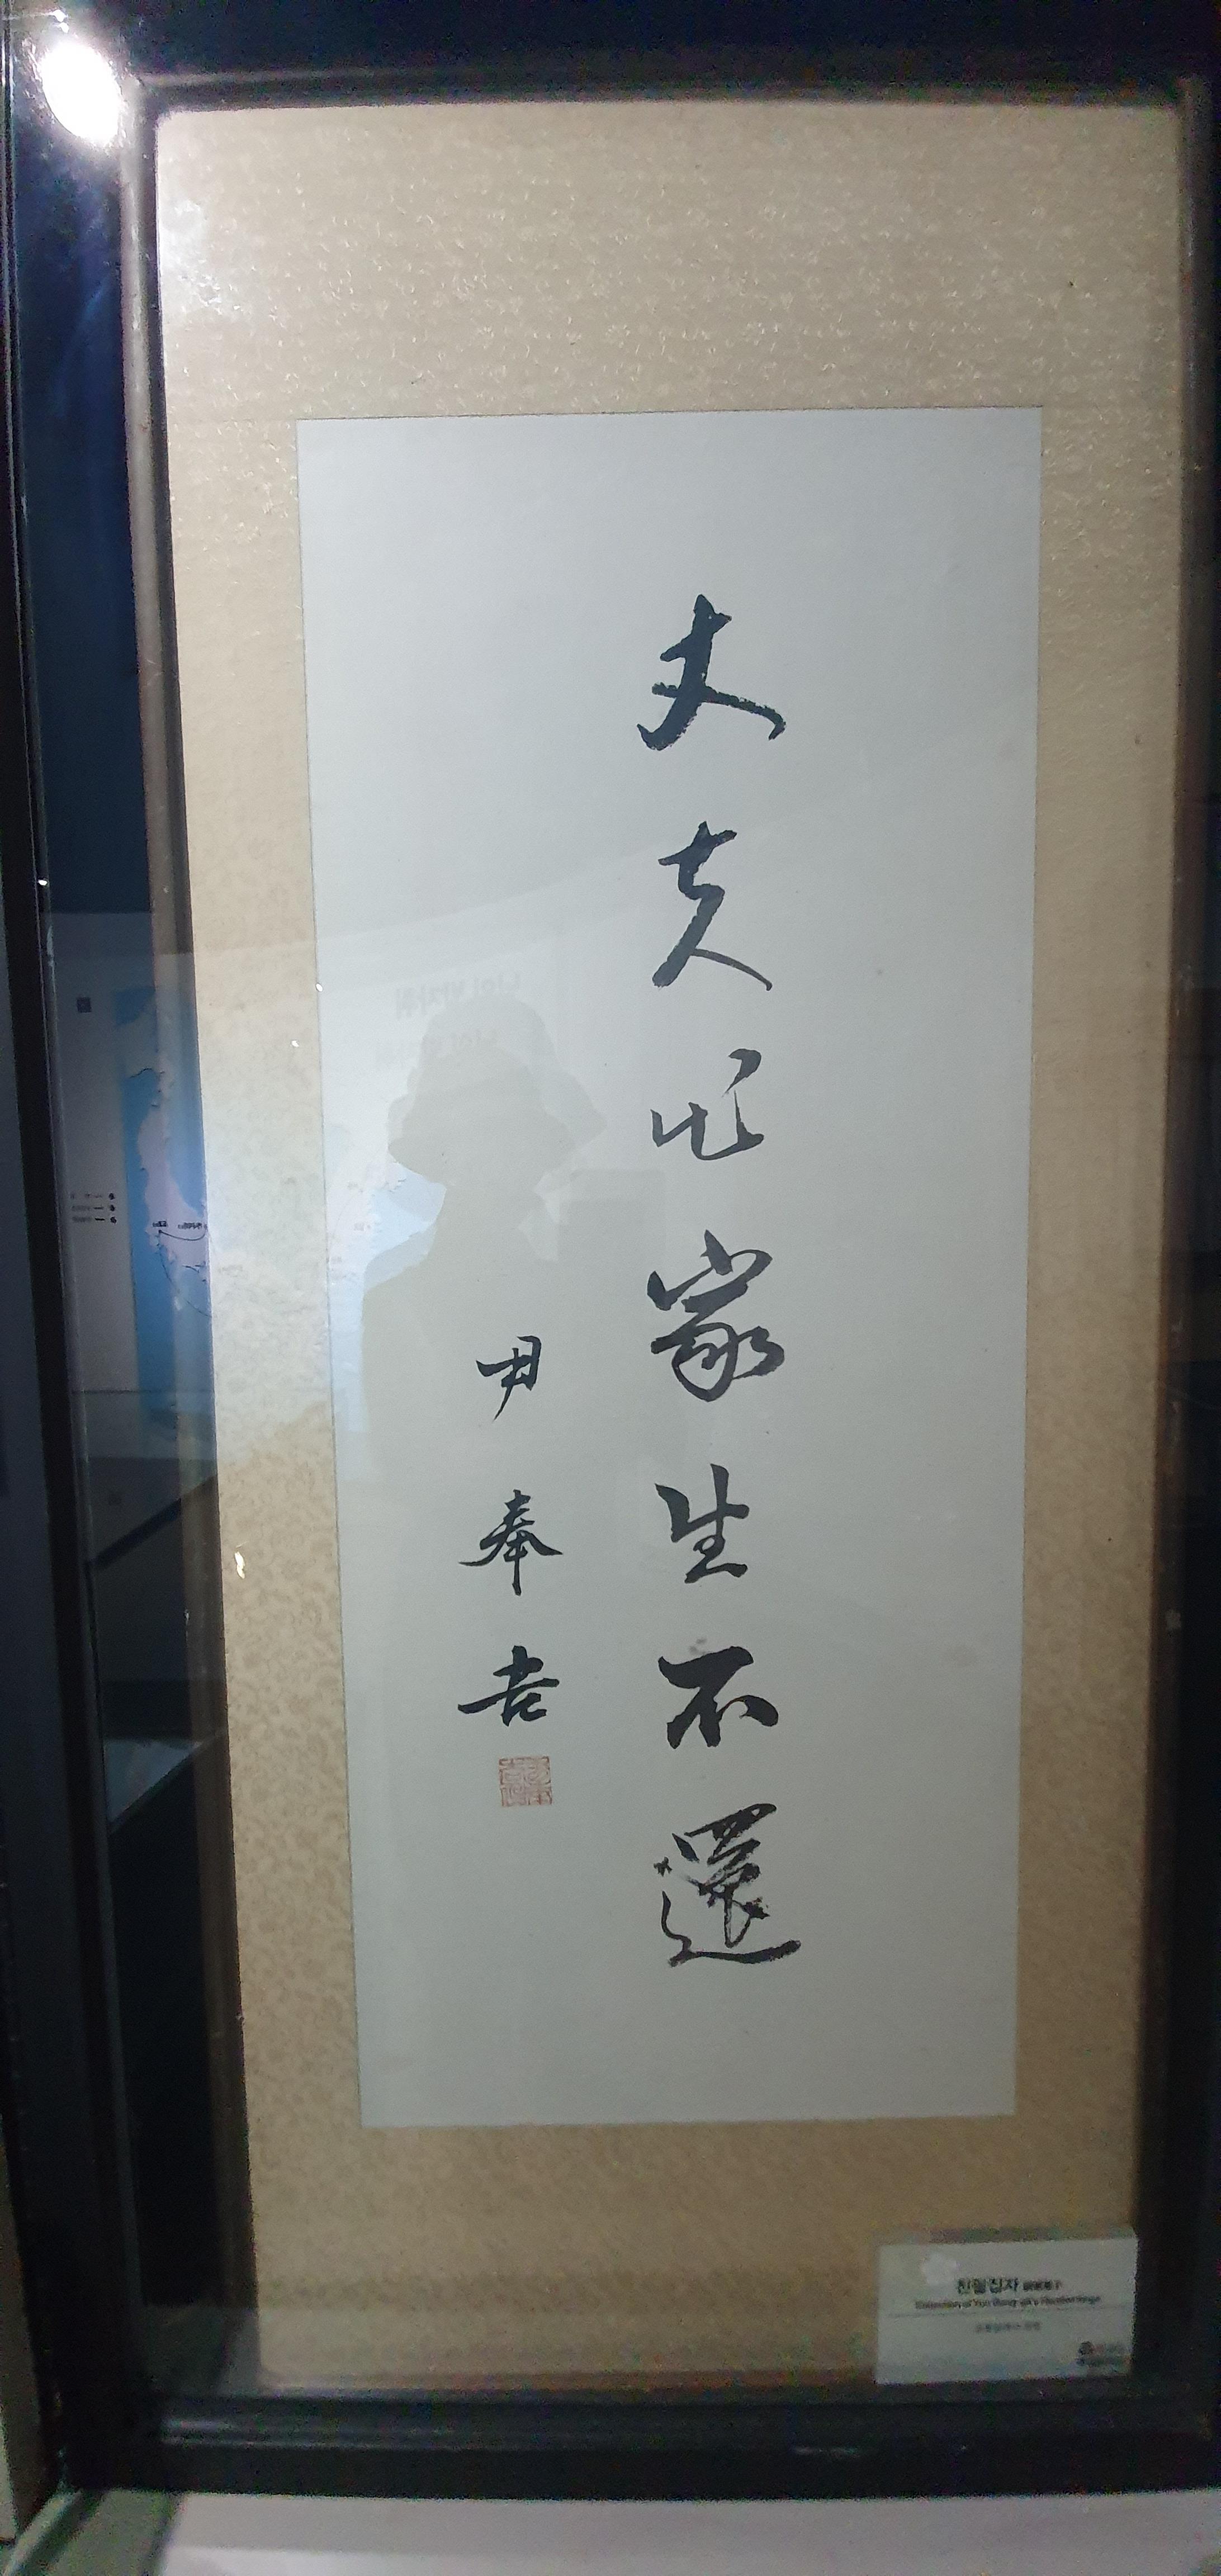 丈夫出家生不還
尹奉吉
친필집자
Collection of Yun Bong-gil's Handwritings